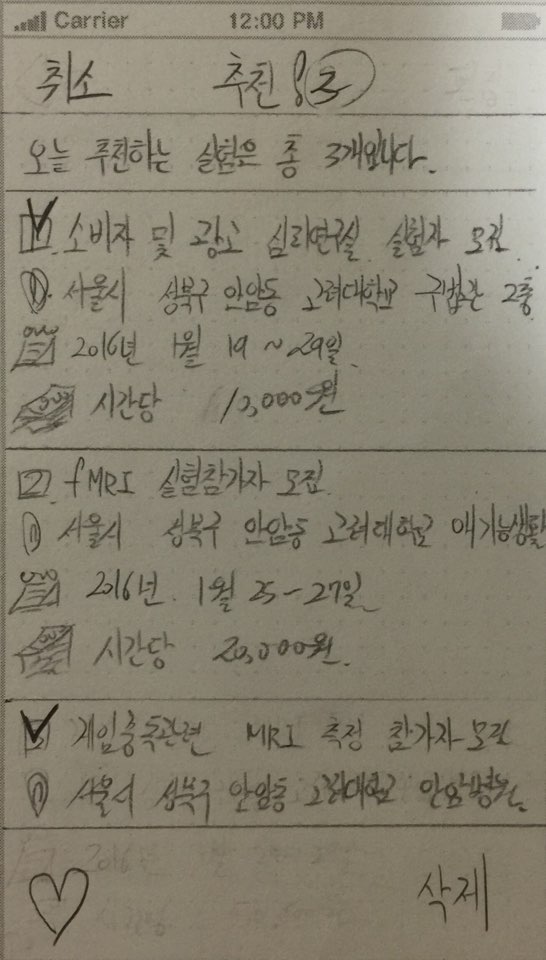 Carrier 12:00 PM
취소 추천 3
오늘 추천하는 실험은 총 3개입니다.
소비자 및 광고 심리연구실 실험자 모집
서울시 성북구 안암동 고려대학교 구법관 2층
2016년 1월 19 ~ 29일.
시간당 10,000원
2 fMRI 실험참가자 모집.
서울시 성북구 안암동 고려대학교 애기능생활
2016년. 1월 25 - 27일
시간당 20,000원.
게임중독관련 MRI 측정 참가자 모집
서울시 성북구 안암동 고려대학교 안암병원.
삭제